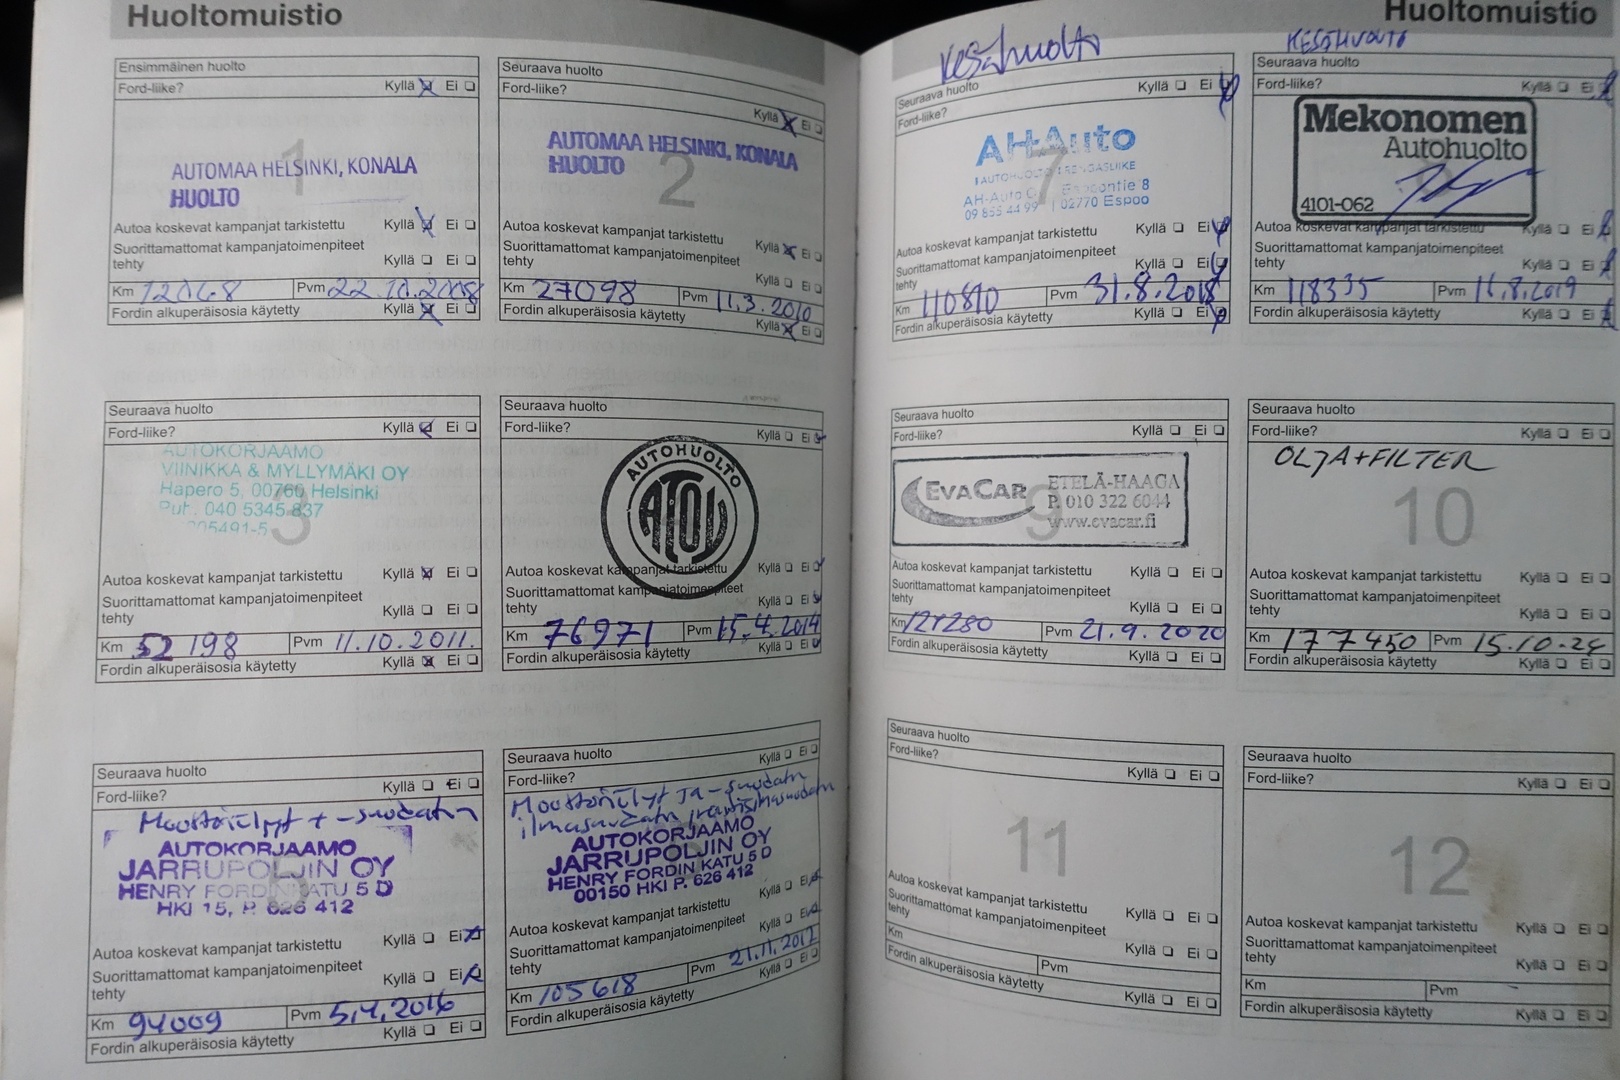 Huoltomuistio
Ensimmäinen huolto
Ford-liike? Kyllä Ei
1
AUTOMAA HELSINKI, KONALA
HUOLTO
Autoa koskevat kampanjat tarkistettu Kyllä Ei
Suorittamattomat kampanjatoimenpiteet
tehty Kyllä Ei
Km 12068 Pvm 22.10.2008
Fordin alkuperäisosia käytetty Kyllä Ei
Seuraava huolto
Ford-liike? Kyllä Ei
2
AUTOMAA HELSINKI, KONALA
HUOLTO
Autoa koskevat kampanjat tarkistettu Kyllä Ei
Suorittamattomat kampanjatoimenpiteet
tehty Kyllä Ei
Km 27098 Pvm 11.3.2010
Fordin alkuperäisosia käytetty Kyllä Ei
Seuraava huolto
Ford-liike? Kyllä Ei
3
AUTOKORJAAMO
VIINIKKA & MYLLYMÄKI OY
Hapero 5, 00760 Helsinki
Puh. 040 5345 837
205491-5
Autoa koskevat kampanjat tarkistettu Kyllä Ei
Suorittamattomat kampanjatoimenpiteet
tehty Kyllä Ei
Km 52 198 Pvm 11.10.2011.
Fordin alkuperäisosia käytetty Kyllä Ei
Seuraava huolto
Ford-liike? Kyllä Ei
AUTOHUOLTO
ATOY
Autoa koskevat kampanjat tarkistettu Kyllä Ei
Suorittamattomat kampanjatoimenpiteet
tehty Kyllä Ei
Km 76971 Pvm 15.4.2014
Fordin alkuperäisosia käytetty Kyllä Ei
Seuraava huolto
Ford-liike? Kyllä Ei
Moottoriöljyt + -suodatin
AUTOKORJAAMO
JARRUPOLJIN OY
HENRY FORDIN KATU 5 D
HKI 15, P. 626 412
Autoa koskevat kampanjat tarkistettu Kyllä Ei
Suorittamattomat kampanjatoimenpiteet
tehty Kyllä Ei
Km 94009 Pvm 5.4.2016
Fordin alkuperäisosia käytetty Kyllä Ei
Seuraava huolto Kyllä Ei
Ford-liike?
Moottoriöljyt ja -suodatin
ilmasuodatin raitisilmasuodatin
AUTOKORJAAMO
JARRUPOLJIN OY
HENRY FORDIN KATU 5 D
00150 HKI P. 626 412
Autoa koskevat kampanjat tarkistettu Kyllä Ei
Suorittamattomat kampanjatoimenpiteet
tehty Kyllä Ei
Km 105618 Pvm 21.11.2017
Fordin alkuperäisosia käytetty Kyllä Ei
Huoltomuistio
Kesähuolto
Seuraava huolto
Ford-liike? Kyllä Ei
7
AH-Auto
AUTOHUOLTO RENGASLIIKE
AH-Auto Espoontie 8
09 855 44 99 | 02770 Espoo
Autoa koskevat kampanjat tarkistettu Kyllä Ei
Suorittamattomat kampanjatoimenpiteet
tehty Kyllä Ei
Km 110810 Pvm 31.8.2018
Fordin alkuperäisosia käytetty Kyllä Ei
KESÄHUOLTO
Seuraava huolto
Ford-liike? Kyllä Ei
Mekonomen
Autohuolto
4101-062
Autoa koskevat kampanjat tarkistettu Kyllä Ei
Suorittamattomat kampanjatoimenpiteet
tehty Kyllä Ei
Km 118335 Pvm 16.8.2019
Fordin alkuperäisosia käytetty Kyllä Ei
Seuraava huolto
Ford-liike? Kyllä Ei
9
EVACAR ETELÄ-HAAGA
P. 010 322 6044
www.evacar.fi
Autoa koskevat kampanjat tarkistettu Kyllä Ei
Suorittamattomat kampanjatoimenpiteet
tehty Kyllä Ei
Km 127280 Pvm 21.9.2020
Fordin alkuperäisosia käytetty Kyllä Ei
Seuraava huolto
Ford-liike? Kyllä Ei
OLJA+FILTER
10
Autoa koskevat kampanjat tarkistettu Kyllä Ei
Suorittamattomat kampanjatoimenpiteet
tehty Kyllä Ei
Km 177450 Pvm 15.10.24
Fordin alkuperäisosia käytetty Kyllä Ei
Seuraava huolto
Ford-liike? Kyllä Ei
11
Autoa koskevat kampanjat tarkistettu Kyllä Ei
Suorittamattomat kampanjatoimenpiteet
tehty Kyllä Ei
Km Pvm
Fordin alkuperäisosia käytetty Kyllä Ei
Seuraava huolto
Ford-liike? Kyllä Ei
12
Autoa koskevat kampanjat tarkistettu Kyllä Ei
Suorittamattomat kampanjatoimenpiteet
tehty Kyllä Ei
Km Pvm
Fordin alkuperäisosia käytetty Kyllä Ei